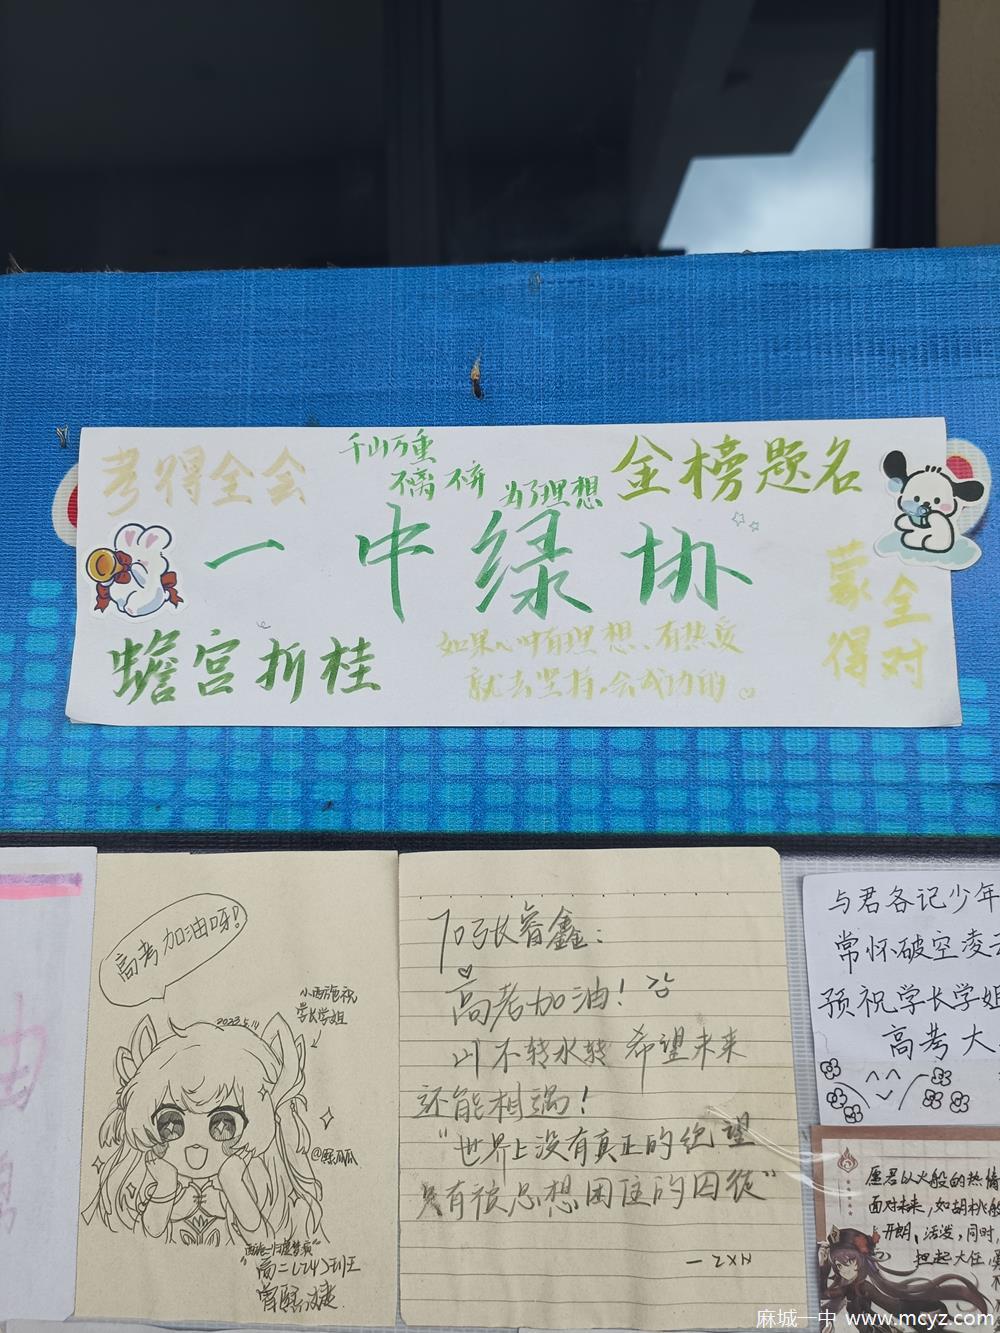 考得全会
千山万重
不离不弃
为了理想
金榜题名
一中绿协
蟾宫折桂
如果心中有理想、有热爱
就去坚持,会成功的
蒙全
得对
高考加油呀!
小西施祝
学长学姐
2023.5.14
高二(24)班
To 张睿鑫:
高考加油!
山不转水转 希望未来
还能相遇!
"世界上没有真正的绝望
只有被思想困住的囚徒"
—ZXH
与君各记少年
常怀破空凌云
预祝学长学姐
高考大
愿君以火般的热情
面对未来,如胡桃般
开朗、活泼,同时,
担起大任
麻城一中 www.mcyz.com